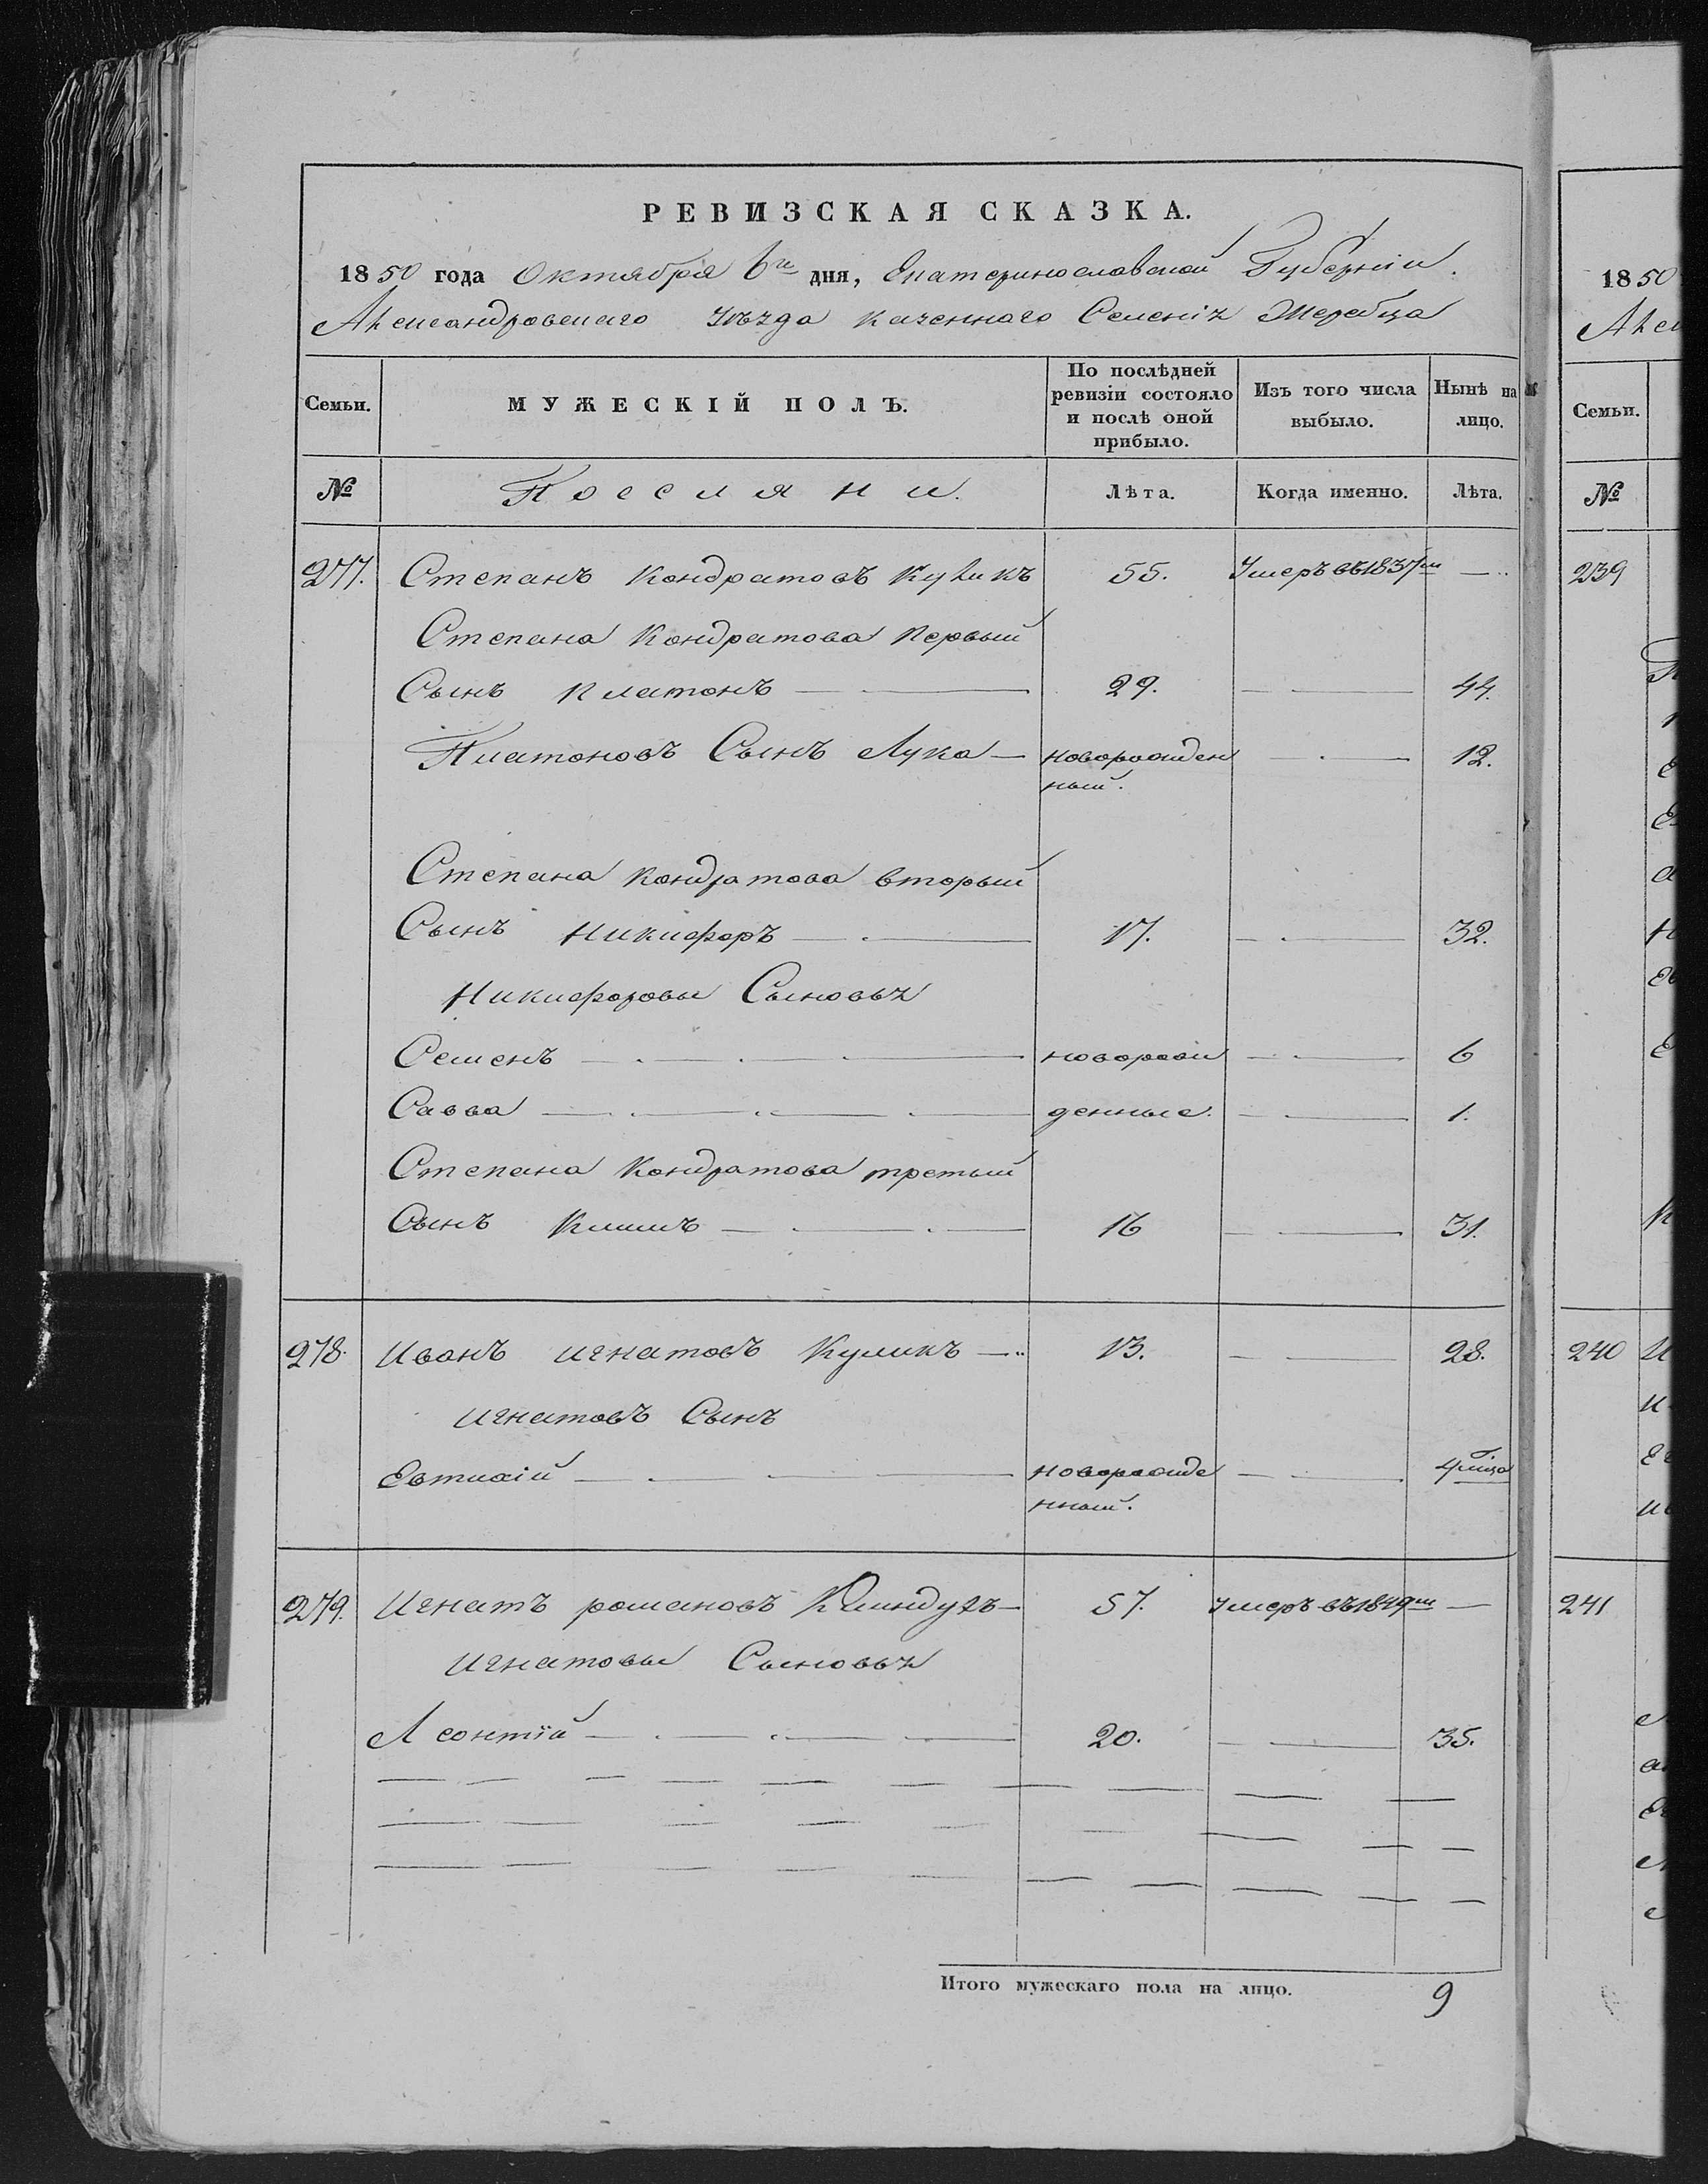 РЕВИЗСКАЯ СКАЗКА.
1850 года Октября 6го дня, Екатеринославской Губерніи.
Александровскаго уѣзда казеннаго Селенія Жеребца
Семьи. МУЖЕСКІЙ ПОЛЪ. По послѣдней ревизіи состояло и послѣ оной прибыло. Изъ того числа выбыло. Нынѣ на лицо.
№ Поселяни. Лѣта. Когда именно. Лѣта.
277. Степанъ Кондратовъ Куликъ 55. Умеръ въ 1837м —
Степана Кондратова Первый
Сынъ Платонъ 29. — 44.
Платоновъ Сынъ Лука — новорожден — 12.
ный.
Степана Кондратова вторый
Сынъ Никифоръ 17. — 32.
Никифоровы Сыновья
Семенъ — новорож — 6
Савва — денные. — 1.
Степана Кондратова третый
Сынъ Климъ — 16 — 31.
278. Иванъ Игнатовъ Куликъ — 13. — 28.
Игнатовъ Сынъ
Евтихій — новорожде — 4 мѣсца
нный.
279. Игнатъ романовъ — 57. умеръ въ 1849м —
Игнатовы Сыновья
Леонтій — 20. — 35.
Итого мужескаго пола на лицо. 9
1850
Семьи.
№
239
240
241